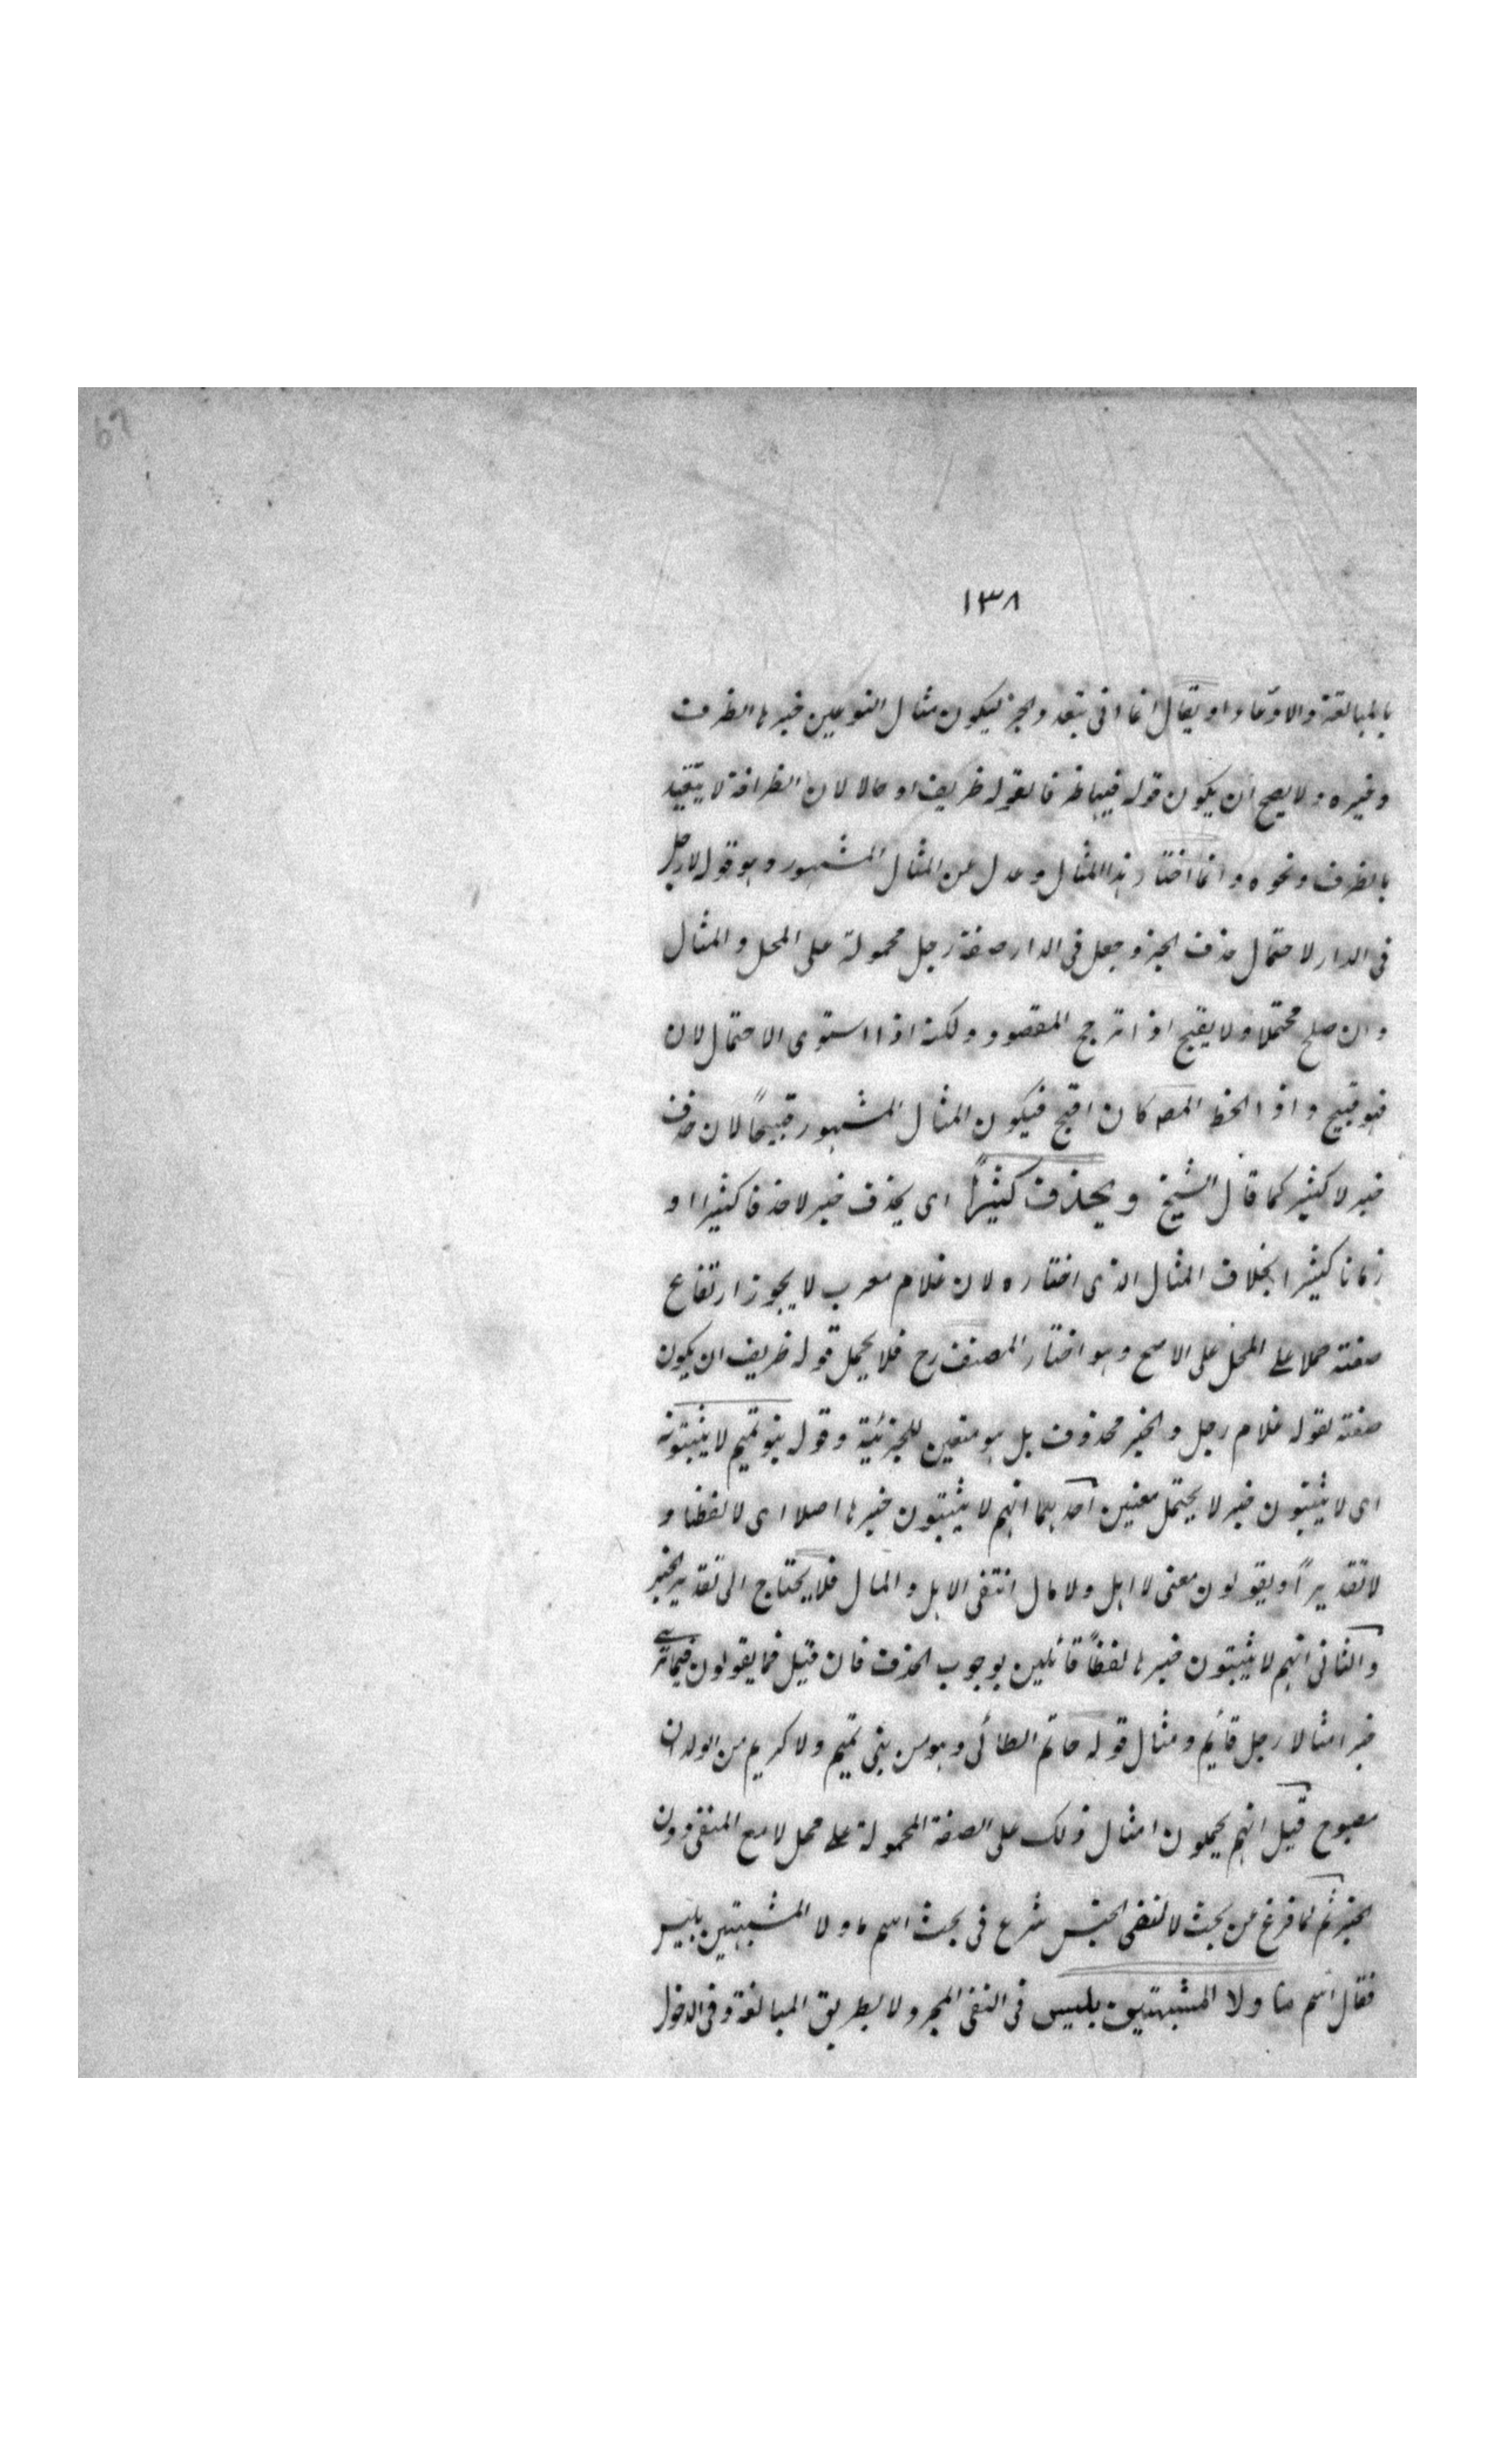 ١٣٨
بالمبالغة والادعاء او يقال انما اتى بتعدد الخبر ليكون مثال النوعين خبرها الظرف
وغيره ولا يصح ان يكون قوله فيها ظرفا لقوله ظريف او حالا لان الظرافة لا يتقيد
بالظرف ونحوه وانما اختار هذا المثال وعدل عن المثال المشهور وهو قوله لا رجل
فى الدار لاحتمال حذف الخبر وجعل فى الدار صفة رجل محمولة على المحل والمثال
وان صلح محتملا ولا يقبح اذا ترجح المقصود ولكنه اذا استوى الاحتمالان
فهو قبيح واذا انحط المصـ كان اقبح فيكون المثال المشهور قبيحاً لان حذف
خبر لا كثير كما قال الشيخ ويحذف كثيراً اى يحذف خبر لا حذفا كثيرا او
زمانا كثيرا بخلاف المثال الذى اختاره لان غلام معرب لا يجوز ارتفاع
صفته حملا على المحل على الاصح وهو اختار المصنف رح فلا يحمل قوله ظريف ان يكون
صفته لقوله غلام رجل والخبر محذوف بل هو متعين للخبرية وقوله بنو تميم لا يثبتونه
اى لا يثبتون خبر لا يحتمل معنين احدهما انهم لا يثبتون خبرها اصلا اى لا لفظا و
لا تقديراً ويقولون معنى لا اهل ولا مال انتفى الاهل والمال فلا يحتاج الى تقدير الخبر
والثانى انهم لا يثبتون خبرها لفظاً قائلين بوجوب الحذف فان قيل فما يقولون فيما ترى
خبرا مثالا رجل قائم ومثال قوله حاتم الطائى وهو من بنى تميم ولا كريم من الولدان
مصبوح قيل انهم يحملون امثال ذلك على الصفة المحمولة على محل لا مع المنفى دون
الخبر ثم لما فرغ عن بحث لا لنفى الجنس شرع فى بحث اسم ما ولا المشبهتين بليس
فقال اسم ما ولا المشبهتين بليس فى النفى المجرد لا بطريق المبالغة وفى الدخول